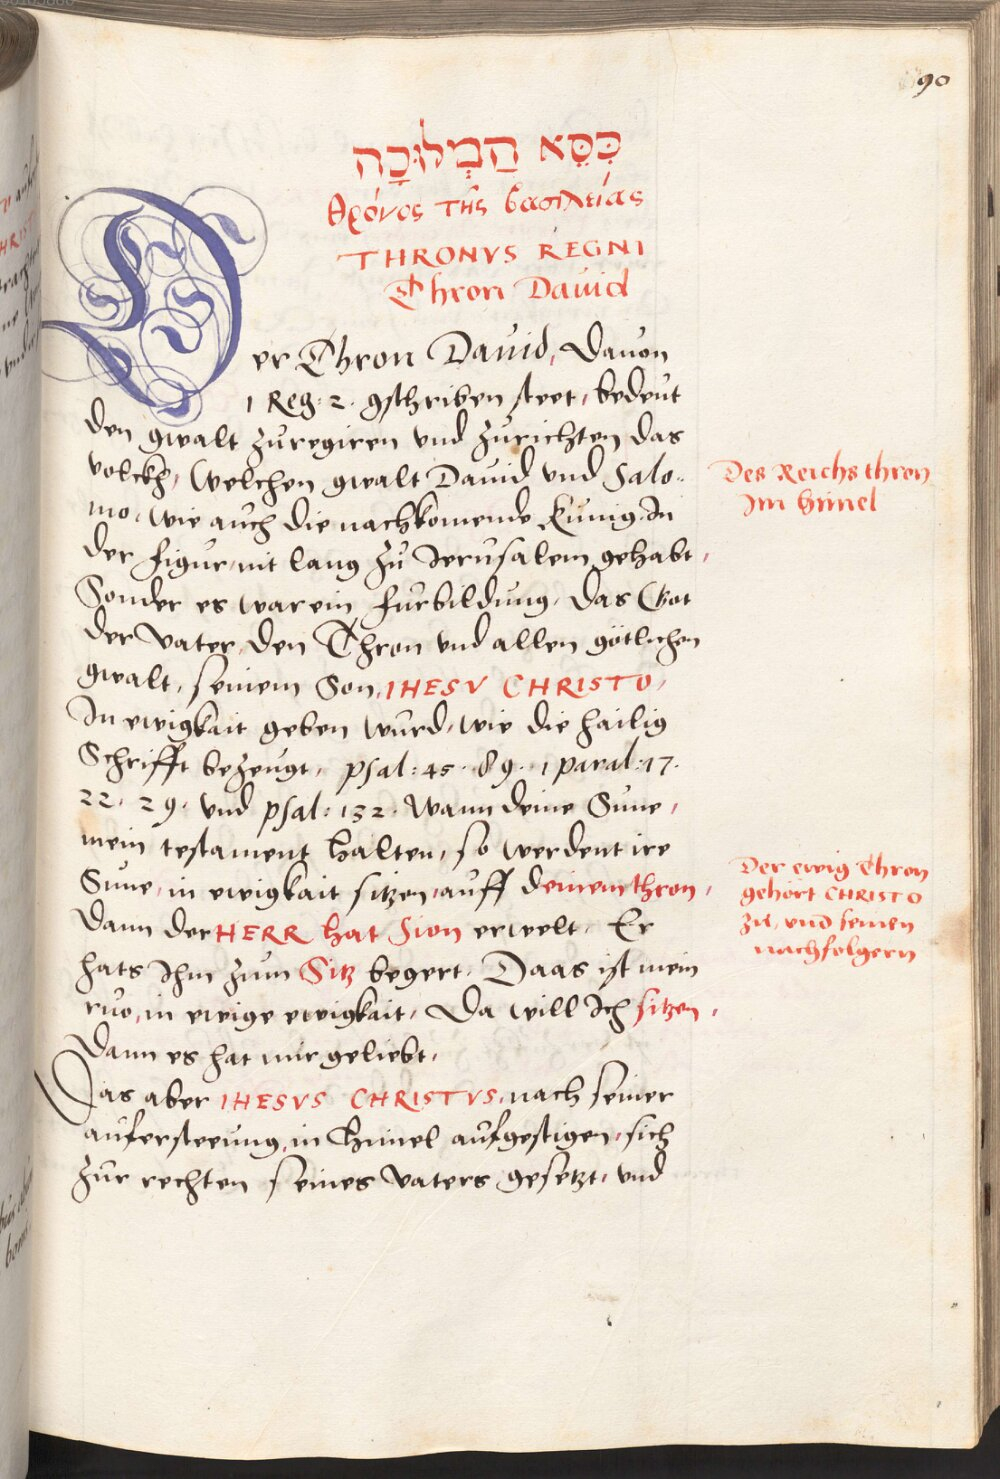 90
כִּסֵּא הַמְלוּכָה
θρόνος τῆς βασιλείας
THRONVS REGNI
Thron Dauid
Der Thron Dauid, Dauon
1 Reg: 2. gschriben steet, bedeut
den gwalt zuregiren vnd zurichten das
volckh, Welchen gwalt Dauid vnd Salo-
mo, wie auch die nachkomende Kunig, In
der figur, nit lang zu Jerusalem gehabt,
Sonder es war ein furbildung, das Got
der Vater, den Thron vnd allen götlichen
gwalt, seinem Son, IHESV CHRISTO,
In ewigkait geben wurd, wie die hailig
Schrifft bezeugt, psal: 45. 89. 1 paral: 17.
22. 29. vnd psal: 132. Wann deine Sune,
mein testament halten, so werdent ire
Sune, in ewigkait sitzen, auff deinem thron,
Dann der HERR hat Sion erwelt, Er
hats Ihm zum Sitz begert, Daas ist mein
ruo, in ewige ewigkait, Da will Ich sitzen,
Dann es hat mir geliebt,
Das aber IHESVS CHRISTVS, nach seiner
aufersteeung, in himel aufgestigen, sich
zur rechten seines Vaters gesetzt, vnd
Des Reichs thron
Im himel
Der ewig Thron
gehört CHRISTO
zu, vnd seinen
nachfolgern